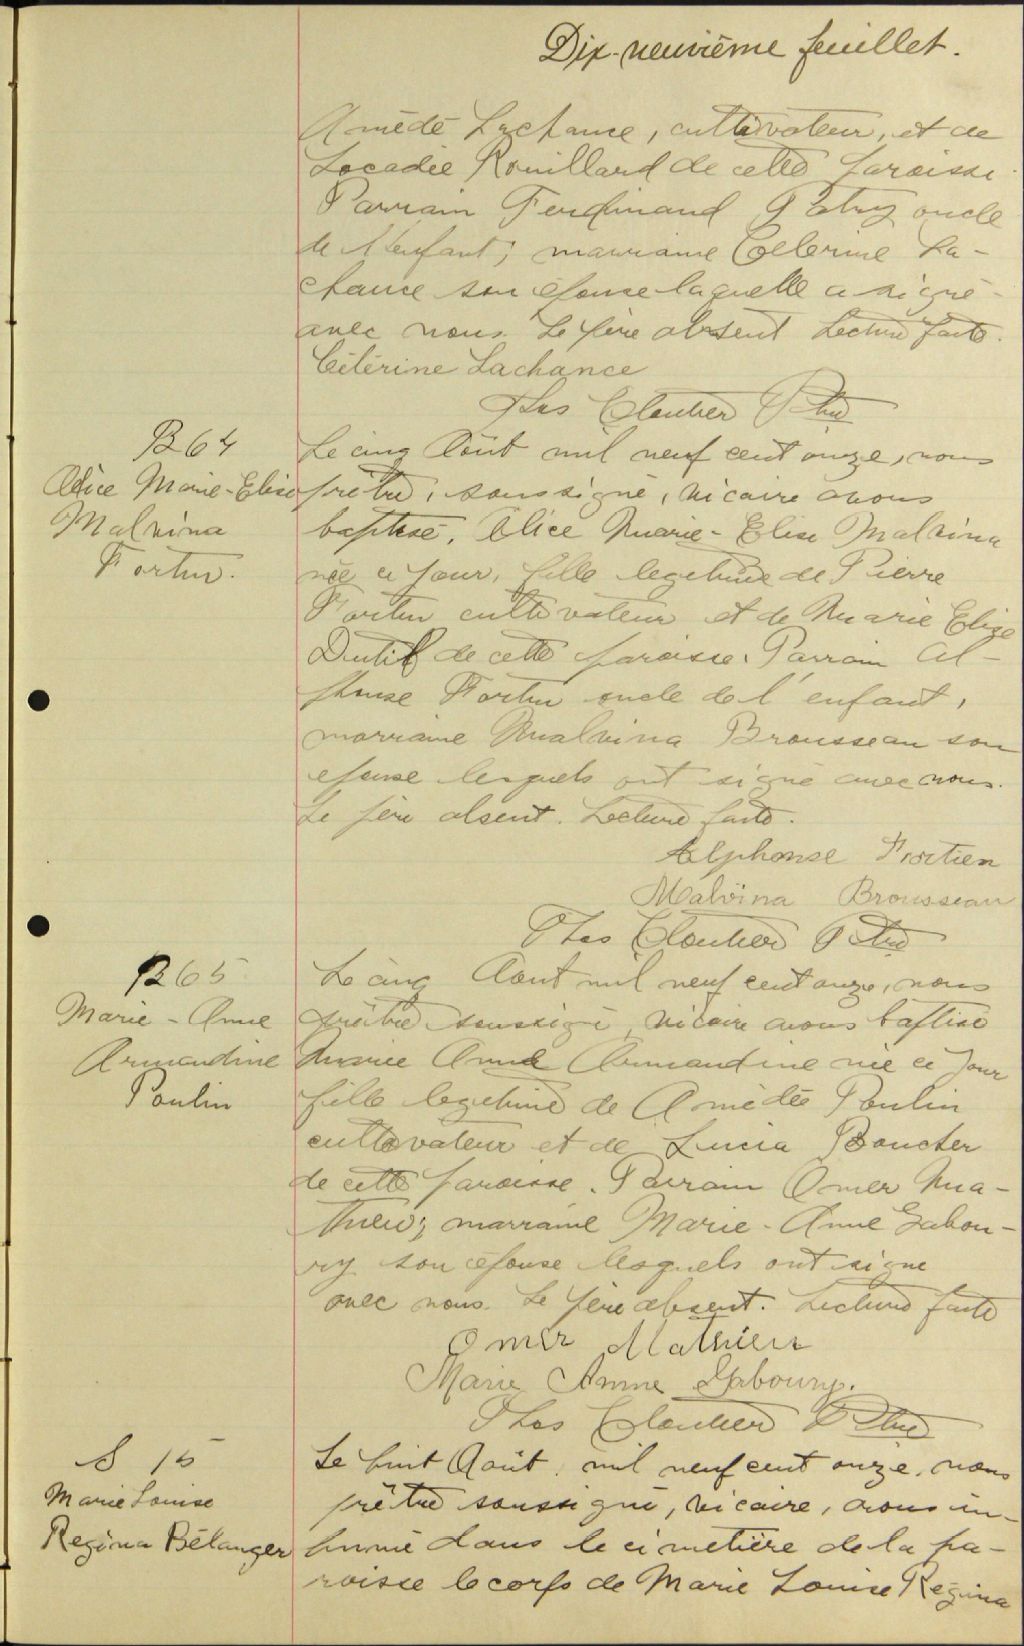 Dix-neuvième feuillet.
Amédé Lachance, cultivateur, et de
Locadie Rouillard de cette paroisse.
Parrain Ferdinand Patry oncle
de l'enfant; marraine Célerine La-
chance son épouse laquelle a signé
avec nous. Le père absent Lecture faite.
Célérine Lachance
Ths Cloutier Ptre
B 64
Alice Marie-Elise
Malvina
Fortin.
Le cinq Août mil neuf cent onze, nous
prêtre, soussigné, vicaire avons
baptisé, Alice Marie-Elise Malvina
née ce jour, fille legitime de Pierre
Fortin cultivateur et de Marie Elise
Dutil de cette paroisse. Parrain Al-
phonse Fortin oncle de l'enfant,
marraine Malvina Brousseau son
épouse lesquels ont signé avec nous.
Le père absent. Lecture faite.
Alphonse Fortien
Malvina Brousseau
Ths Cloutier Ptre
B 65
Marie-Anne
Armandine
Poulin
Le cinq Aout mil neuf cent onze, nous
prêtre soussigé, vicaire avons baptisé
Marie Anne Armandine née ce jour
fille legitime de Amédée Poulin
cultivateur et de Lucia Boucher
de cette paroisse. Parrain Omer Ma-
thieu; marraine Marie-Anne Gabou-
ry son épouse lesquels ont signé
avec nous. Le père absent. Lecture faite
Omer Mathieu
Marie Anne Gaboury.
Ths Cloutier Ptre
S 15
Marie Louise
Regina Bélanger
Le huit Août, mil neuf cent onze, nous
prêtre soussigné, vicaire, avons in-
humé dans le cimetière de la pa-
roisse le corps de Marie Louise Regina